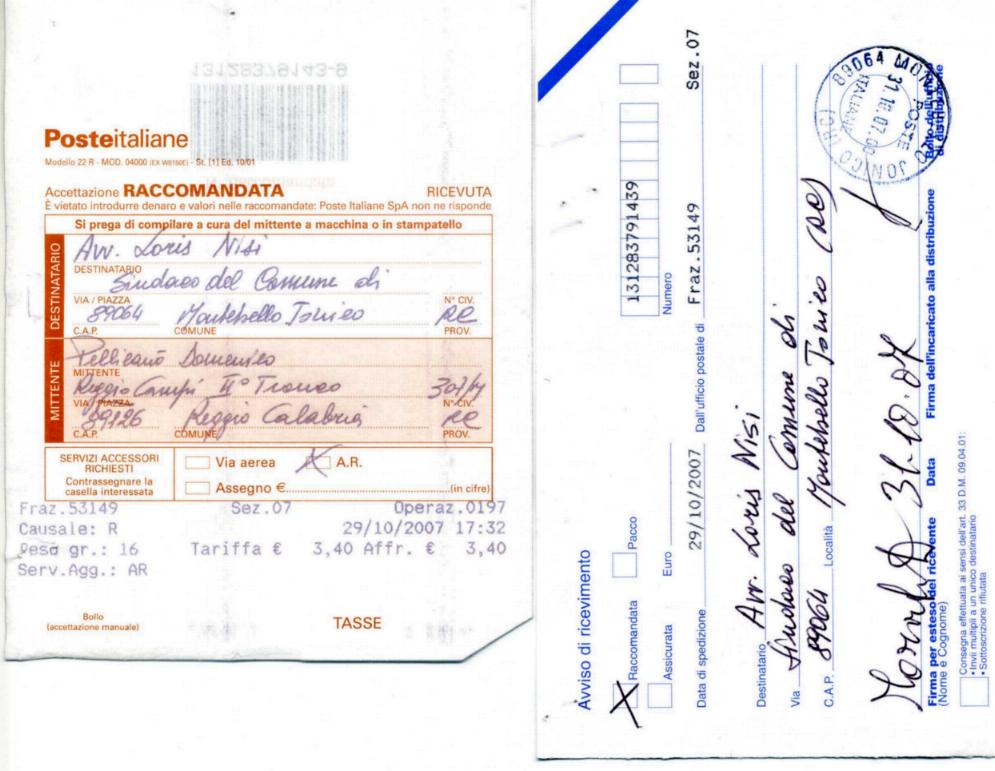 13128379143-9
Posteitaliane
Modello 22 R - MOD. 04000 (EX W8160E) - St. [1] Ed. 10/01
Accettazione RACCOMANDATA RICEVUTA
È vietato introdurre denaro e valori nelle raccomandate: Poste Italiane SpA non ne risponde
Si prega di compilare a cura del mittente a macchina o in stampatello
DESTINATARIO
Avv. Loris Nisi
DESTINATARIO
Sindaco del Comune di
VIA / PIAZZA N° CIV.
89064 Montebello Jonico RC
C.A.P. COMUNE PROV.
MITTENTE
Pellicanò Domenico
MITTENTE
Reggio Campi II° Tronco 307/M
VIA / PIAZZA N° CIV.
89126 Reggio Calabria RC
C.A.P. COMUNE PROV.
SERVIZI ACCESSORI RICHIESTI
Contrassegnare la casella interessata
Via aerea X A.R.
Assegno € (in cifre)
Fraz.53149 Sez.07 Operaz.0197
Causale: R 29/10/2007 17:32
Peso gr.: 16 Tariffa € 3,40 Affr. € 3,40
Serv.Agg.: AR
Bollo
(accettazione manuale)
TASSE
Avviso di ricevimento
X Raccomandata Pacco 131283791439
Assicurata Euro Numero
29/10/2007 Fraz.53149 Sez.07
Data di spedizione Dall'ufficio postale di
Avv. Loris Nisi
Destinatario
Sindaco del Comune di
Via
89064 Montebello Jonico (RC)
C.A.P. Località
31-10-07
Firma per esteso del ricevente Data Firma dell'incaricato alla distribuzione Bollo dell'ufficio di distribuzione
(Nome e Cognome)
Consegna effettuata ai sensi dell'art. 33 D.M. 09.04.01:
• Invii multipli a un unico destinatario
• Sottoscrizione rifiutata
89064
31.10.07.00
POSTE ITALIANE
JONICO (RC)